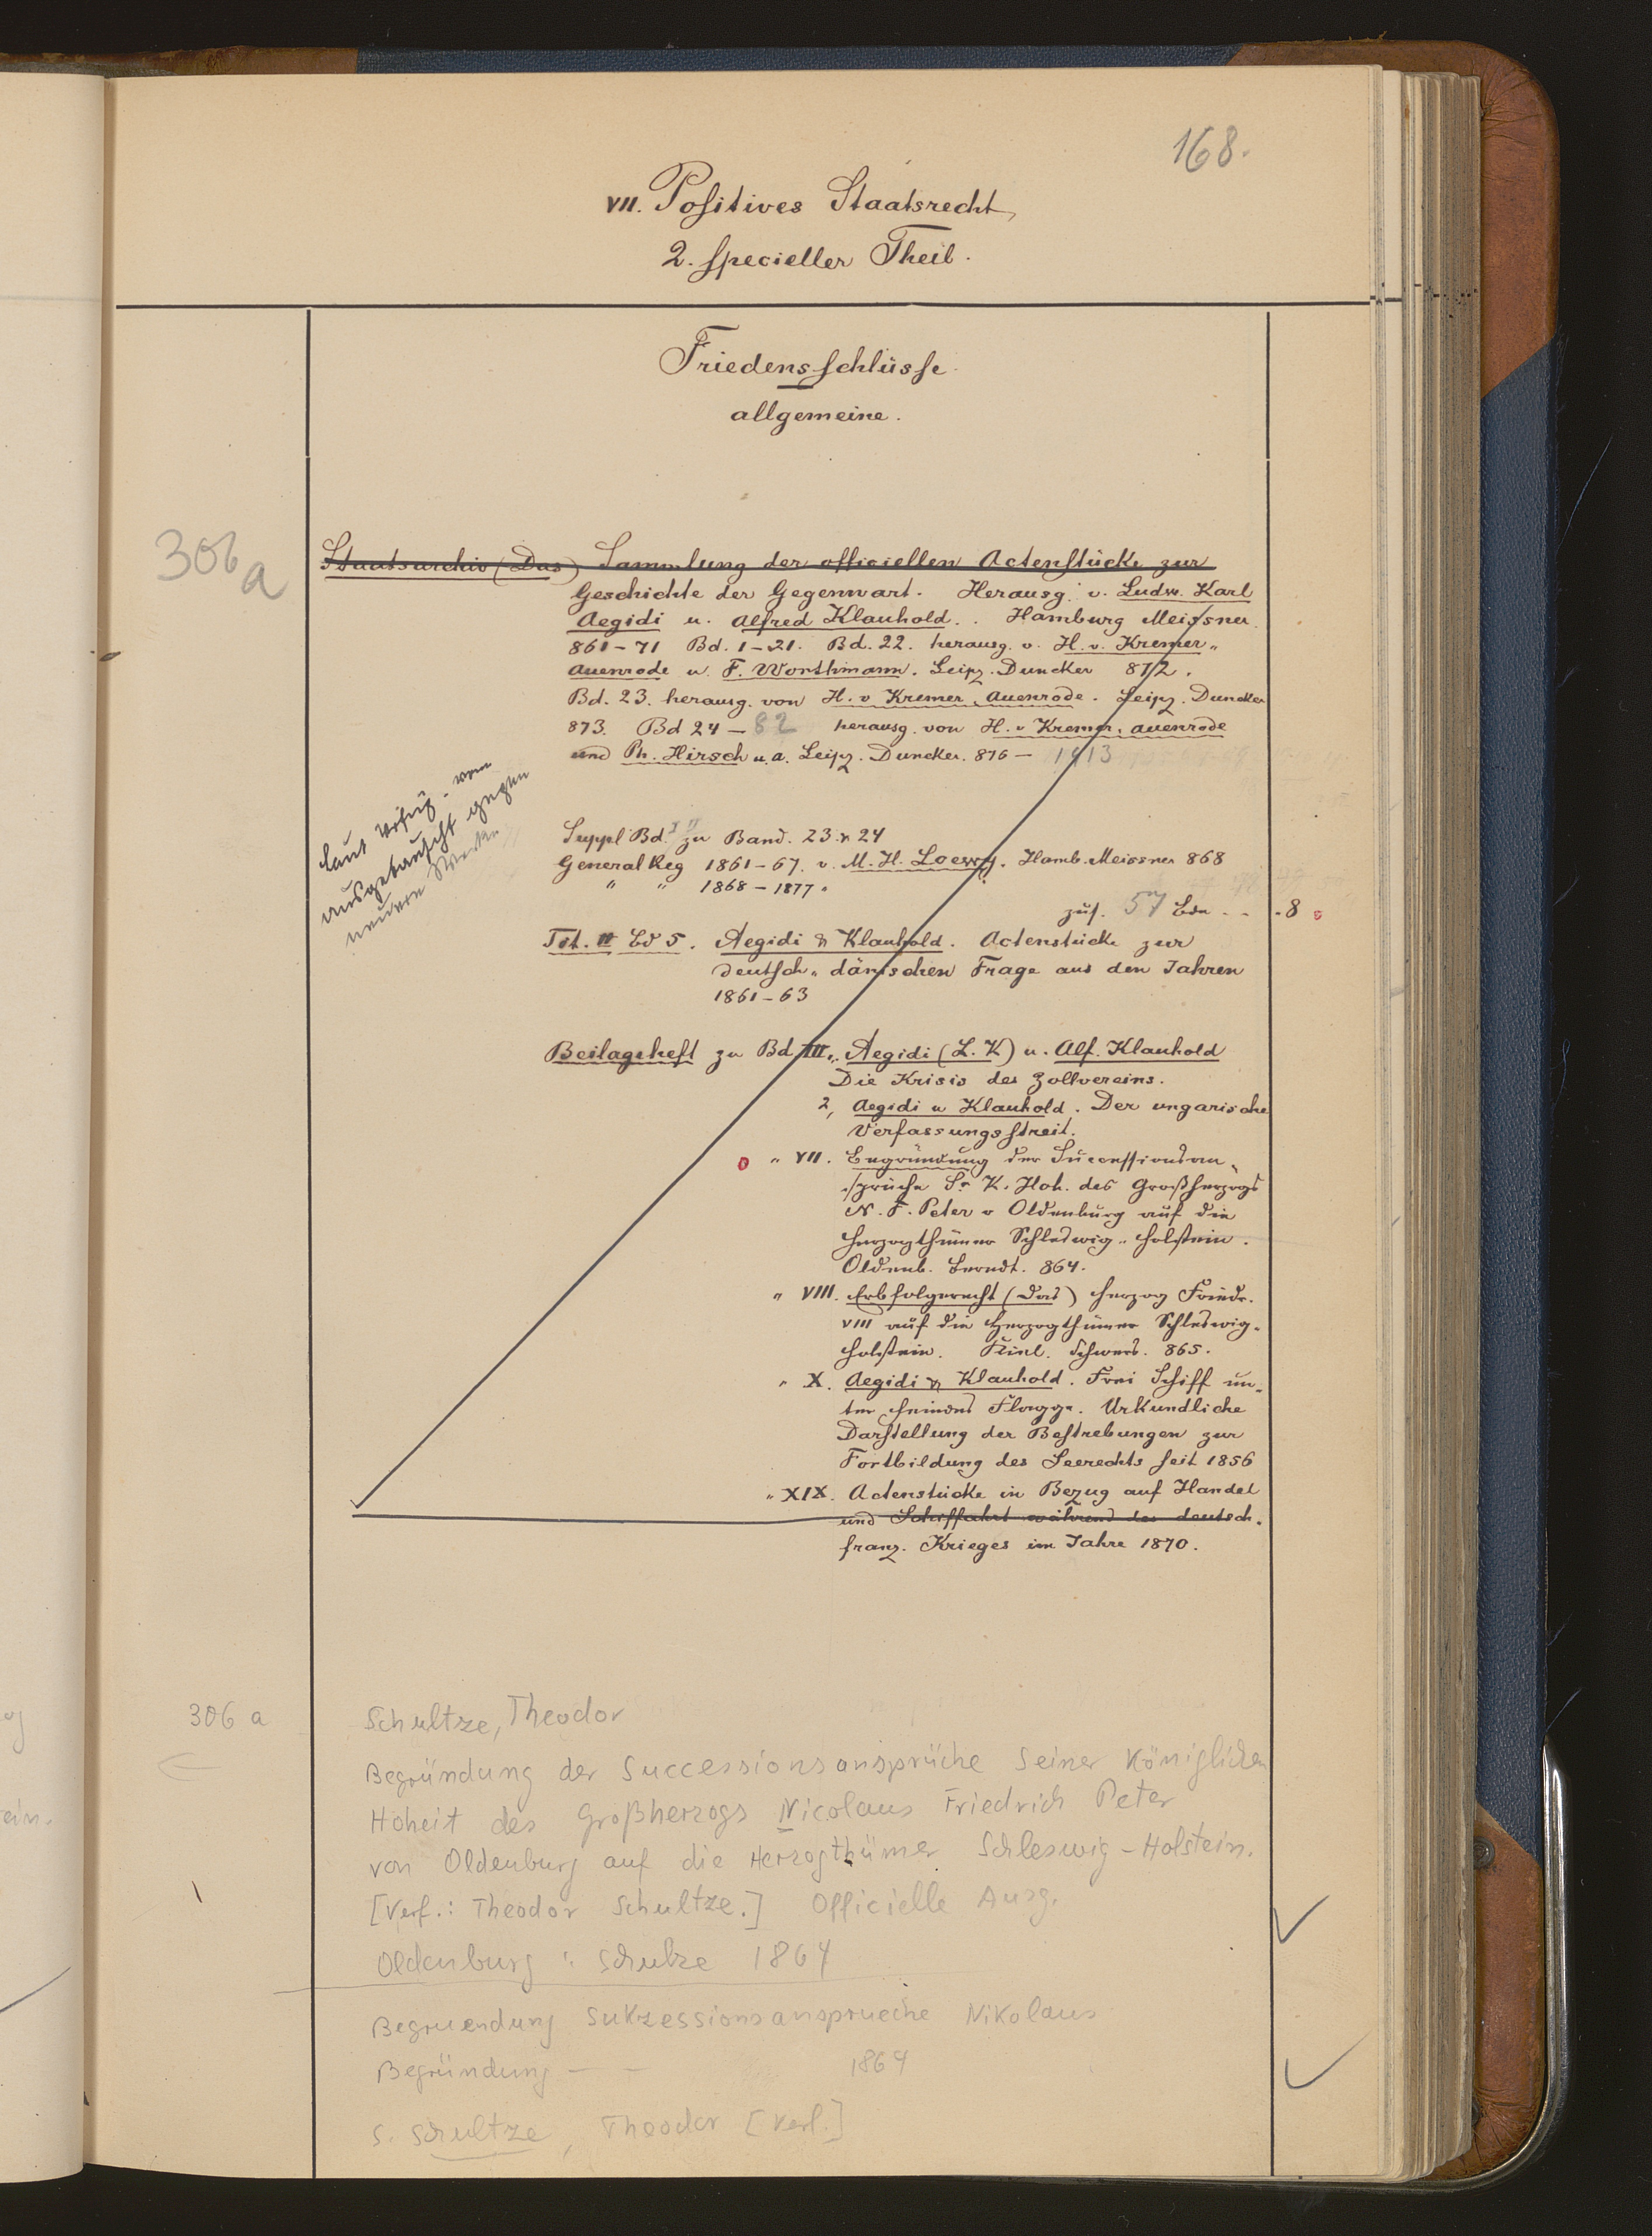 168.
VII. Positives Staatsrecht,
2. specieller Theil.
Friedensschlüsse
allgemeine.
306a
Staatsarchiv (Das) Sammlung der officiellen Actenstücke zur
Geschichte der Gegenwart. Herausg. v. Ludw. Karl
Aegidi u. Alfred Klauhold. Hamburg Meissner
861-71 Bd. 1-21. Bd. 22. herausg. v. H. v. Kremer-
Auenrode u. F. Worthmann. Leipz. Duncker 872.
Bd. 23. herausg. von H. v Kremer-Auenrode. Leipz. Duncker
873. Bd 24-82 herausg. von H. v Kremer-Auenrode
und Ph. Hirsch u. a. Leipz. Duncker. 876- 1913
laut
ausgetauscht gegen
neuere Werke
Suppl Bd. I II zu Band. 23 & 24
General Reg 1861-67. v. M. H. Loewy. Hamb. Meissner 868
" " 1868-1877.
zus. 57 Bde - - -8
Tit. II Bd 5. Aegidi & Klauhold. Actenstücke zur
deutsch-dänischen Frage aus den Jahren
1861-63
Beilageheft zu Bd III, Aegidi (L. K) u. Alf. Klauhold
Die Krisis des Zollvereins.
2, Aegidi u Klauhold. Der ungarische
Verfassungsstreit.
" VII. Begründung der Successionsan-
sprüche Sr K. Hoh. des Großherzogs
N. F. Peter v Oldenburg auf die
Herzogthümer Schleswig-Holstein.
Oldenb. Berndt. 864.
" VIII. Erbfolgerecht (das) Herzog Friedr.
VIII auf die Herzogthümer Schleswig-
Holstein. Kiel. Schwers. 865.
" X. Aegidi & Klauhold. Frei Schiff un-
ter Feindes Flagge. Urkundliche
Darstellung der Bestrebungen zur
Fortbildung des Seerechts seit 1856
" XIX. Actenstücke in Bezug auf Handel
und Schiffahrt während des deutsch-
franz. Krieges im Jahre 1870.
306 a
Schultze, Theodor
Begründung der Successionsansprüche Seiner Königlichen
Hoheit des Großherzogs Nicolaus Friedrich Peter
von Oldenburg auf die Herzogthümer Schleswig-Holstein.
[Verf.: Theodor Schultze.] Officielle Ausg.
Oldenburg : Schulze 1864
Begruendung Sukzessionsansprueche Nikolaus
Begründung - - 1864
s. Schultze, Theodor [Verf.]